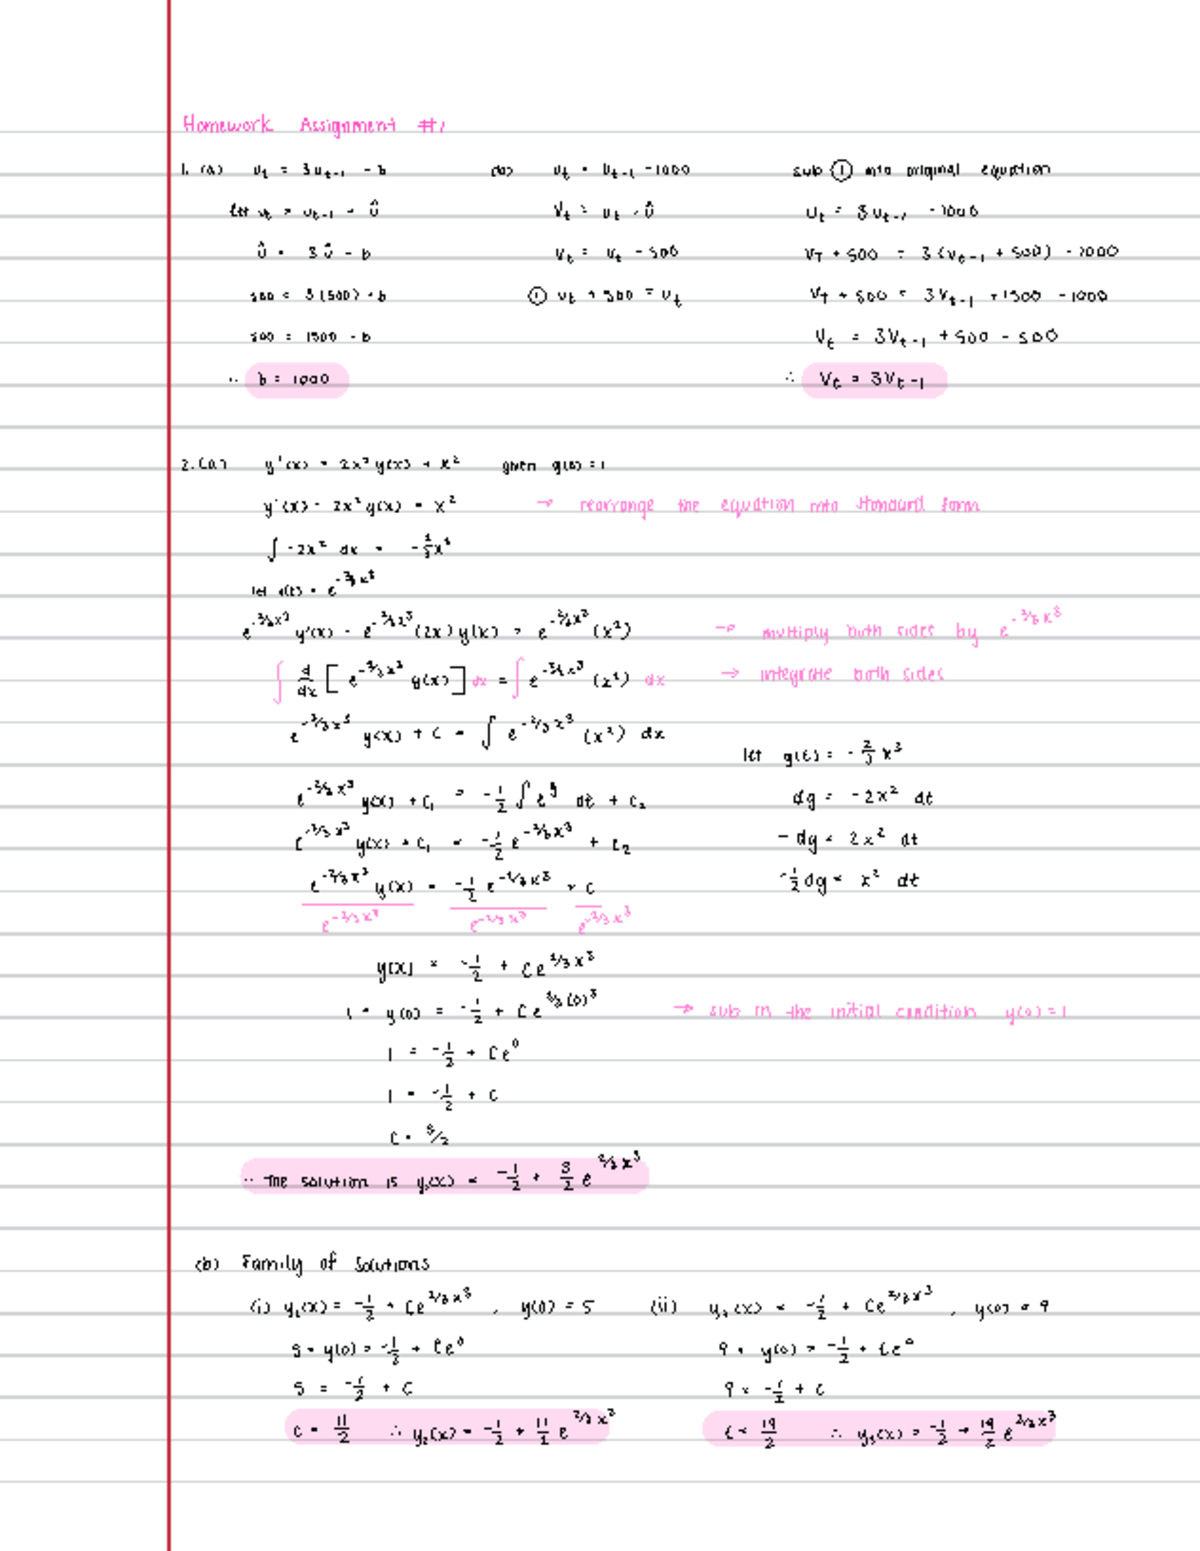 Homework Assignment #1
1. (a) u_t = 3u_{t-1} - b
let u_t = u_{t-1} = û
û = 3û - b
500 = 3(500) - b
500 = 1500 - b
∴ b = 1000
(b) u_t = u_{t-1} - 1000
V_t = u_t - û
V_t = u_t - 500
① v_t + 500 = u_t
sub ① into original equation
u_t = 3u_{t-1} - 1000
V_T + 500 = 3(V_{t-1} + 500) - 1000
V_T + 500 = 3V_{t-1} + 1500 - 1000
V_t = 3V_{t-1} + 500 - 500
∴ V_t = 3V_{t-1}
2. (a) y'(x) = 2x² y(x) + x² given y(0) = 1
y'(x) - 2x² y(x) = x² → rearrange the equation into standard form
∫ -2x² dx = -2/3 x³
let = e^{-2/3 x³}
e^{-2/3 x³} y'(x) - e^{-2/3 x³} (2x) y(x) = e^{-2/3 x³} (x²) → multiply both sides by e^{-2/3 x³}
∫ d/dx [ e^{-2/3 x³} y(x) ] dx = ∫ e^{-2/3 x³} (x²) dx → integrate both sides
e^{-2/3 x³} y(x) + C = ∫ e^{-2/3 x³} (x²) dx
let g(t) = -2/3 x³
dg = -2x² dt
-dg = 2x² dt
-1/2 dg = x² dt
e^{-2/3 x³} y(x) + C₁ = -1/2 ∫ e^g dt + C₂
e^{-2/3 x³} y(x) + C₁ = -1/2 e^{-2/3 x³} + C₂
e^{-2/3 x³} y(x) = -1/2 e^{-2/3 x³} + C
e^{-2/3 x³} e^{-2/3 x³} e^{-2/3 x³}
y(x) = -1/2 + Ce^{2/3 x³}
1 = y(0) = -1/2 + Ce^{2/3 (0)³} → sub in the initial condition y(0) = 1
1 = -1/2 + Ce⁰
1 = -1/2 + C
C = 3/2
∴ The solution is y₁(x) = -1/2 + 3/2 e^{2/3 x³}
(b) Family of Solutions
(i) y₂(x) = -1/2 + Ce^{2/3 x³} , y(0) = 5
5 = y(0) = -1/2 + Ce⁰
5 = -1/2 + C
C = 11/2 ∴ y₂(x) = -1/2 + 11/2 e^{2/3 x³}
(ii) y₃(x) = -1/2 + Ce^{2/3 x³} , y(0) = 9
9 = y(0) = -1/2 + Ce⁰
9 = -1/2 + C
C = 19/2 ∴ y₃(x) = -1/2 + 19/2 e^{2/3 x³}